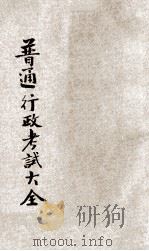 普通行政考試大全
www.mtoou.info